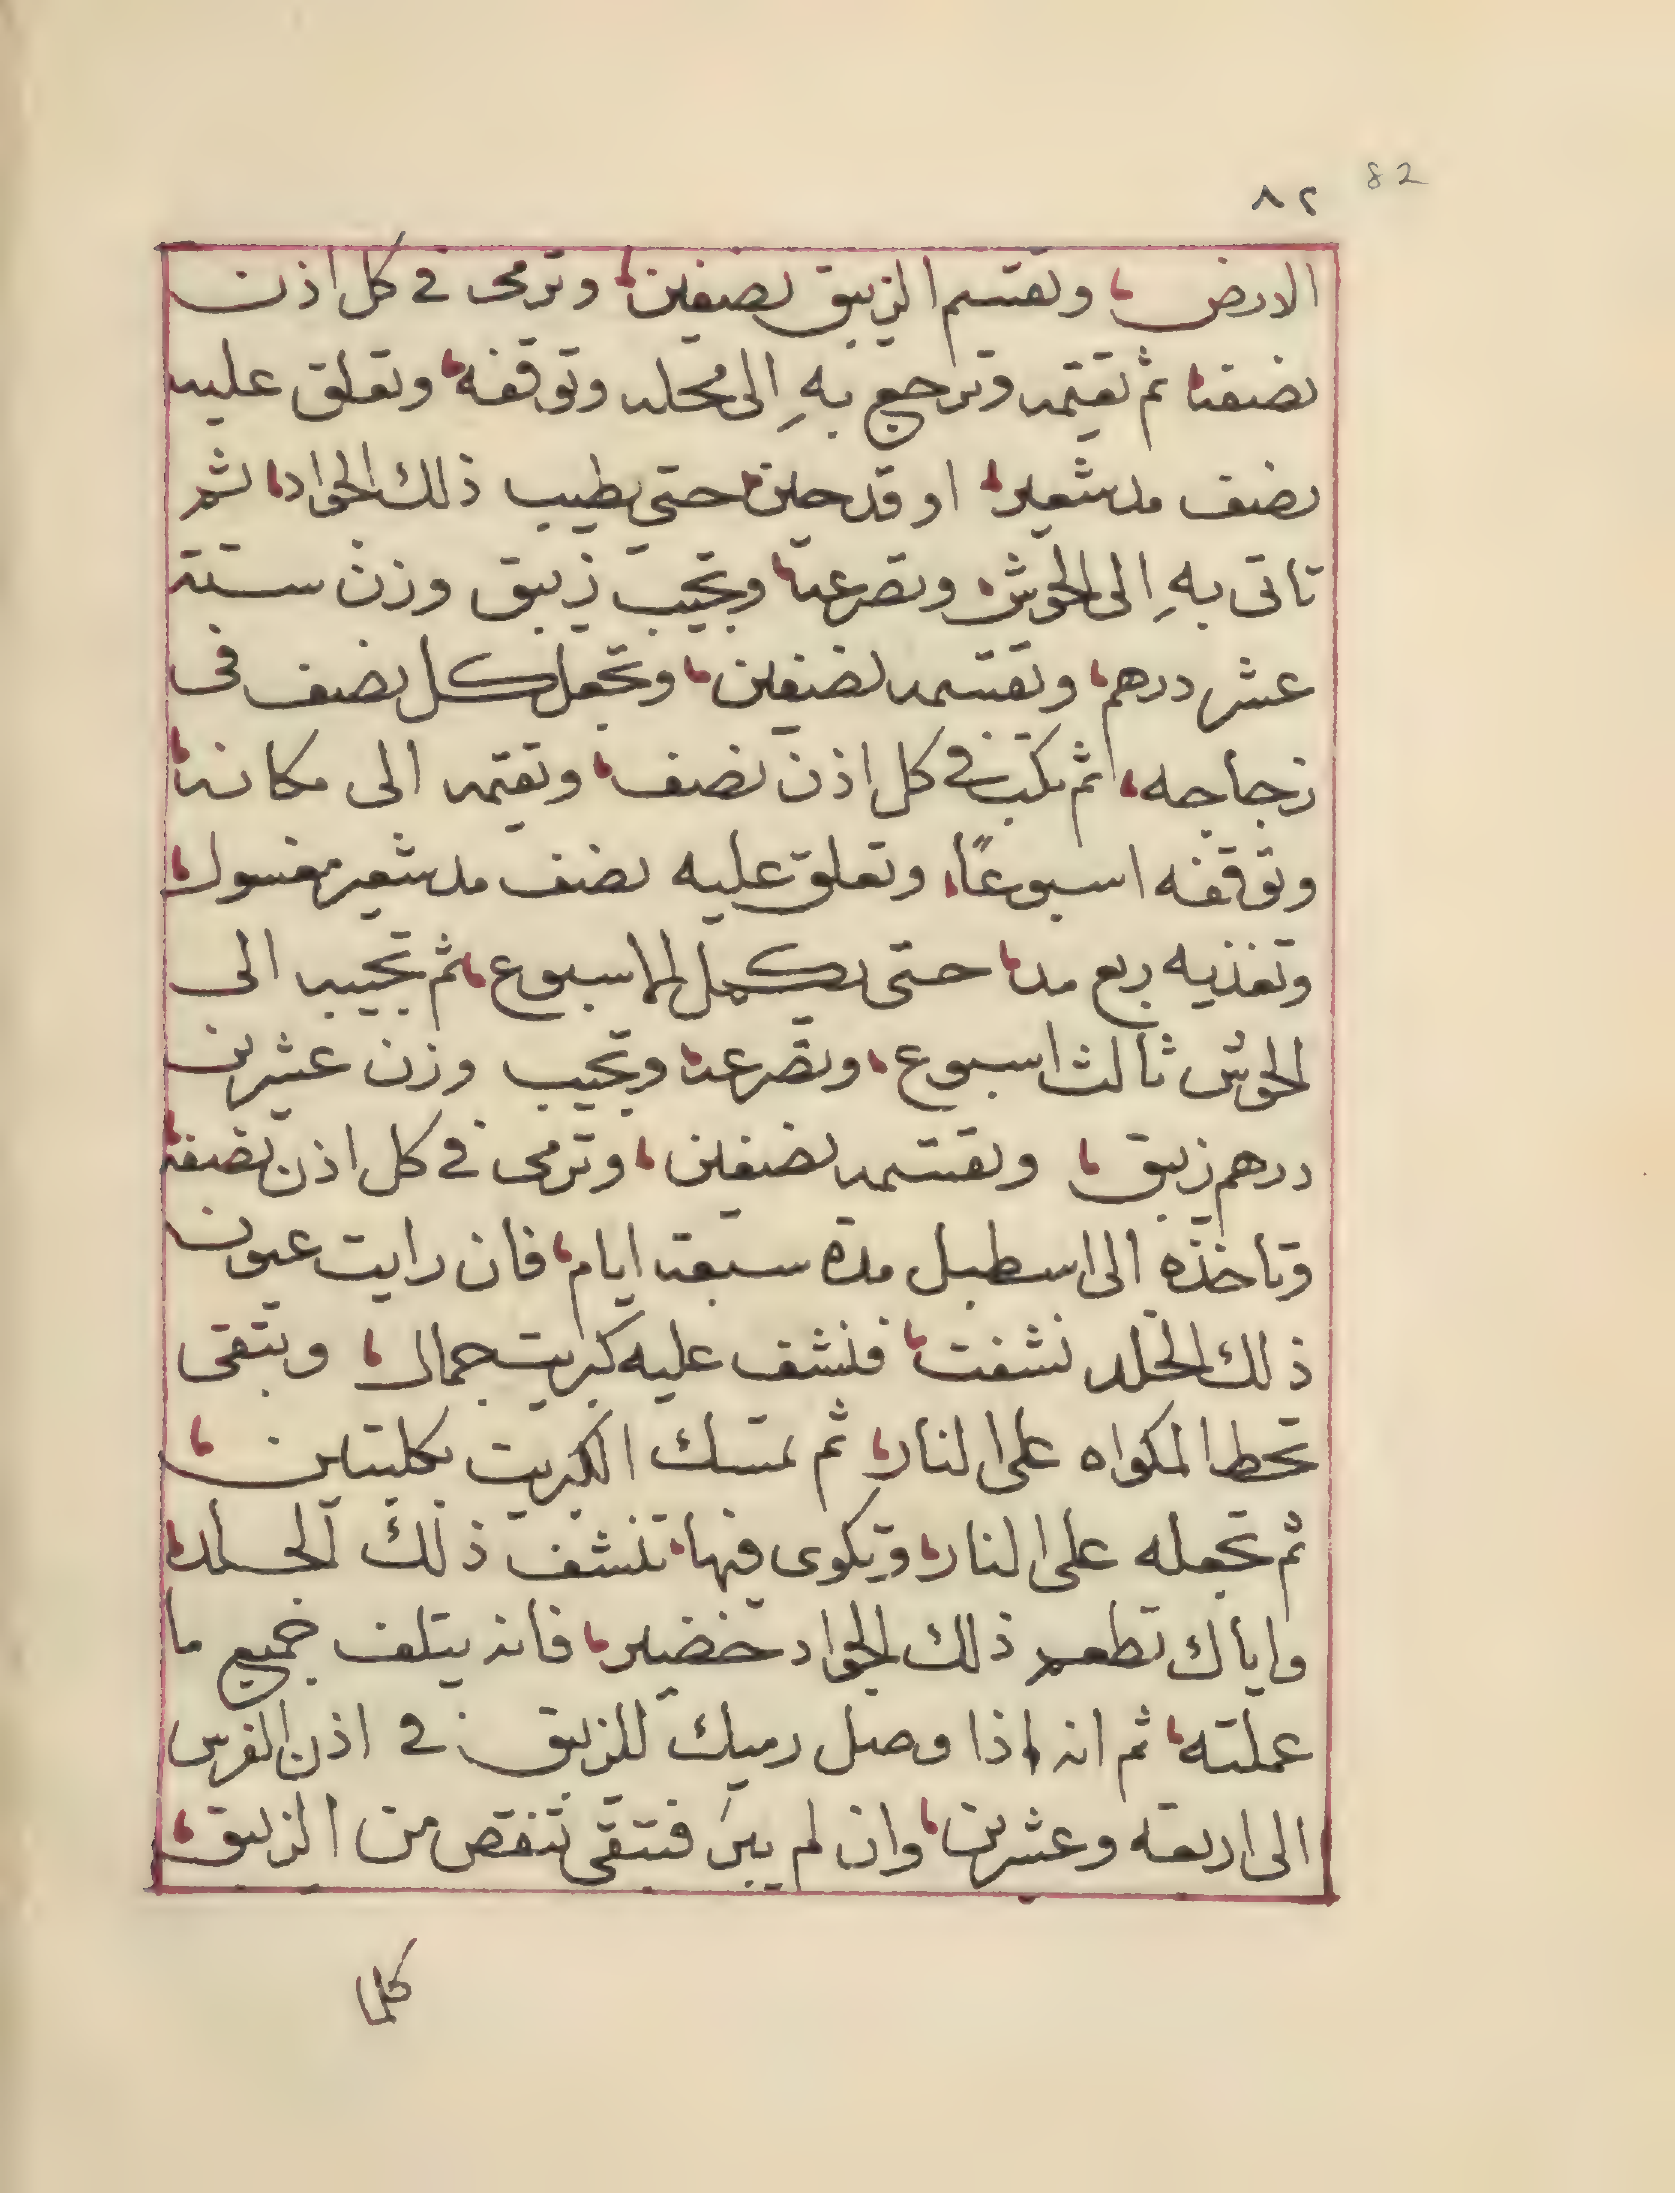 ٨٢ 82
الارض، وتقسم الزيبق نصفين، وترمى فى كل اذن
نصفه، ثم تقيمه وترجع بهِ الى محله وتوقفه، وتعلق عليه
نصف مد شعير، او قدحين، حتى يطيب ذلك الجواد، ثم
تاتى بهِ الى الحوش، وتصرعه، وتجيب زيبق وزن ستة
عشر درهم، وتقسمه نصفين، وتجعل كل نصف فى
زجاجه، ثم تكب فى كل اذن نصف، وتقيمه الى مكانه،
وتوقفه اسبوعًا، وتعلق عليه نصف مد شعير مغسول،
وتغذيه ربع مد، حتى يكمل الاسبوع، ثم تجيبه الى
الحوش ثالث اسبوع، وتصرعه، وتجيب وزن عشرين
درهم زيبق، وتقسمه نصفين، وترمى فى كل اذن نصفه،
وتاخذه الى اسطبل مدة سبعة ايام، فان رايت عيون
ذلك الخلد نشفت، فنشف عليه كبريت جمال، وبتقى
تحط المكواه على النار، ثم تمسك الكبريت بكلبتين،
ثم تجعله على النار، وتكوى فيها، تنشف ذلك الخلد،
واياك تطعم ذلك الجواد خضير، فانه يتلف جميع ما
عملته، ثم انه اذا وصل رميك للزيبق فى اذن الفرس
الى اربعة وعشرين، وان لم يبرَ فتبقى تنقص من الزيبق،
كلما